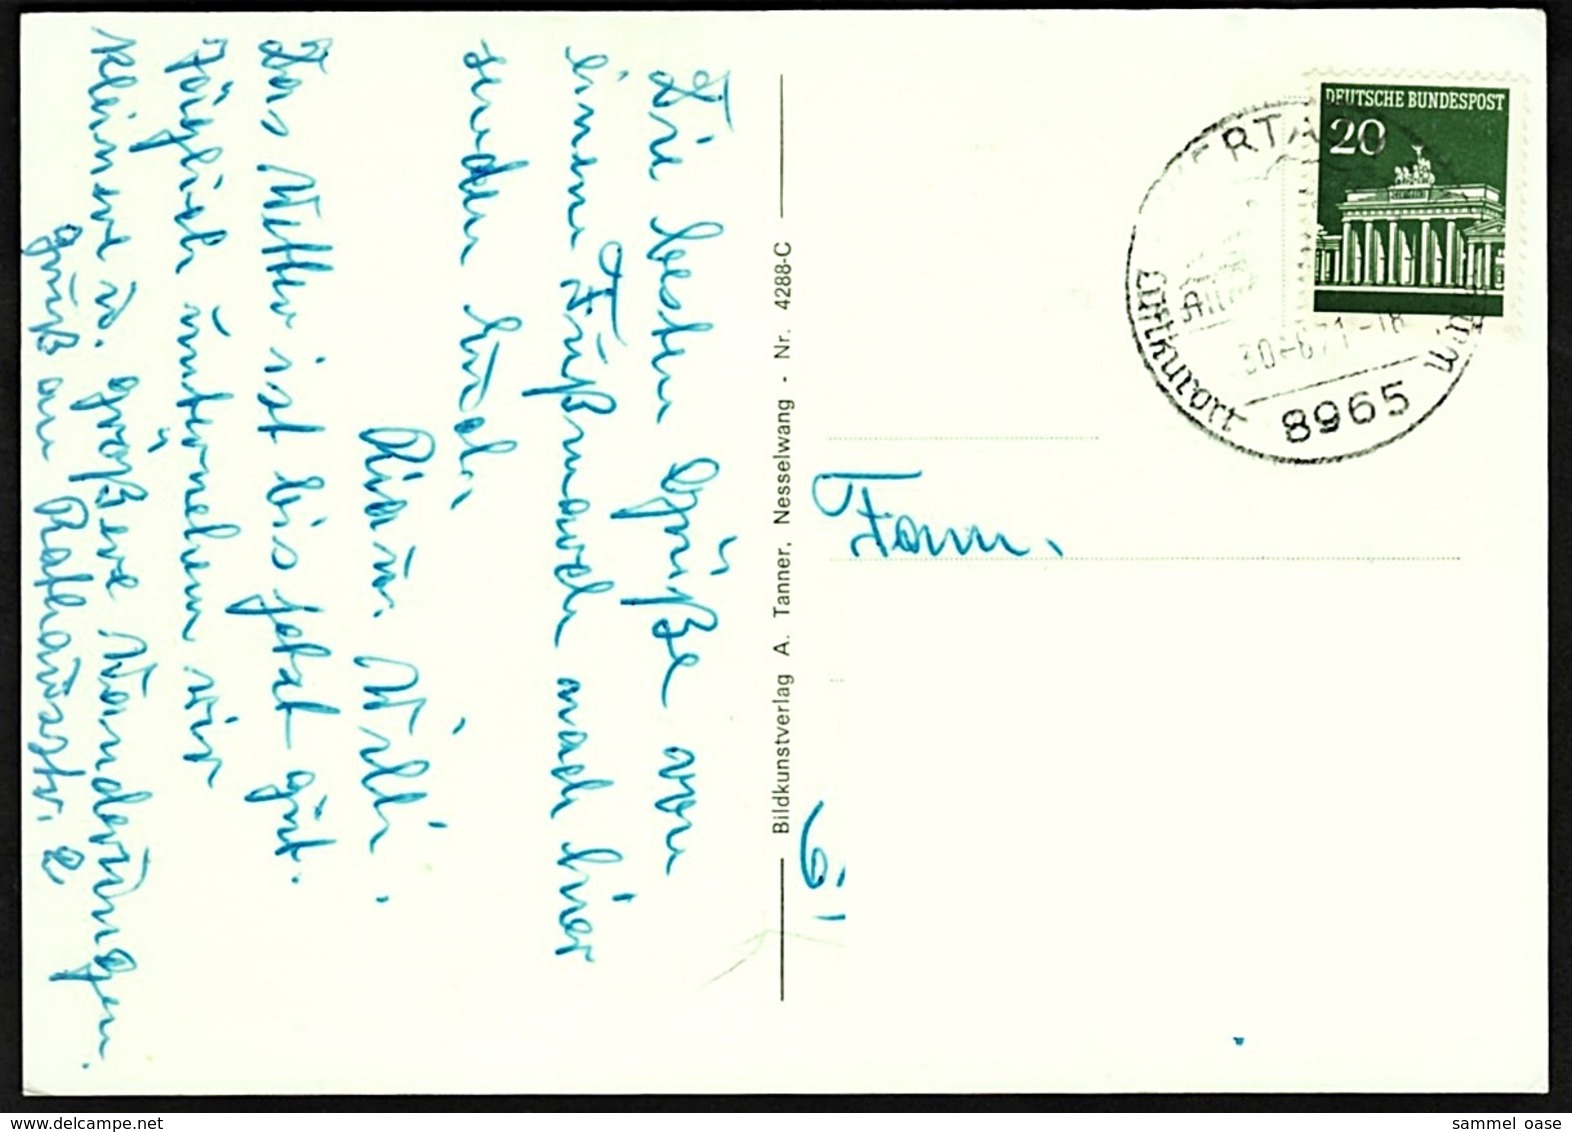 Die besten Grüße von
einem Fußmarsch nach hier
senden Euch
Willi.
Das Wetter ist bis jetzt gut.
Täglich unternehmen wir
kleinere u. größere Wanderungen.
Gruß an Rathausstr. 2
Bildkunstverlag A. Tanner, Nesselwang - Nr. 4288-C
DEUTSCHE BUNDESPOST
20
Luftkurort
8965
Fam.
sammel oase